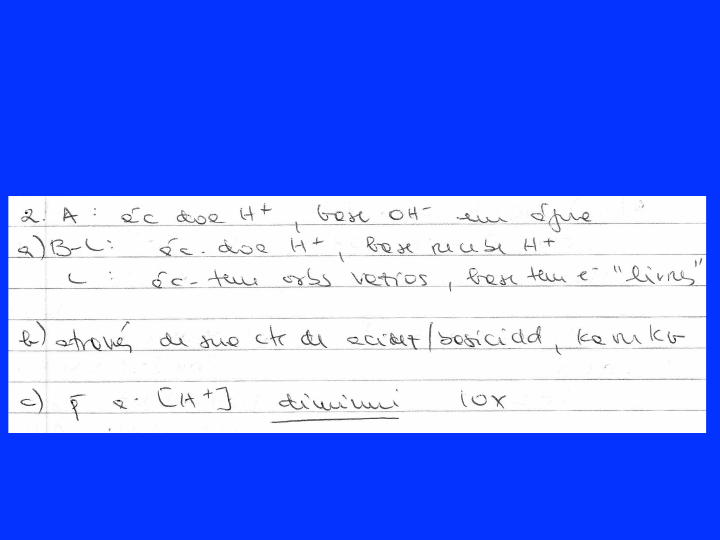 2. A : ác doa H+, base OH- em água
a) B-L: ác. doa H+, base recebe H+
L : ác - tem orbs vazios, base tem e- "livres"
b) através de sua cte de acidez/basicidd, Ka ou Kb
c) p̄ a [H+] diminui 10x